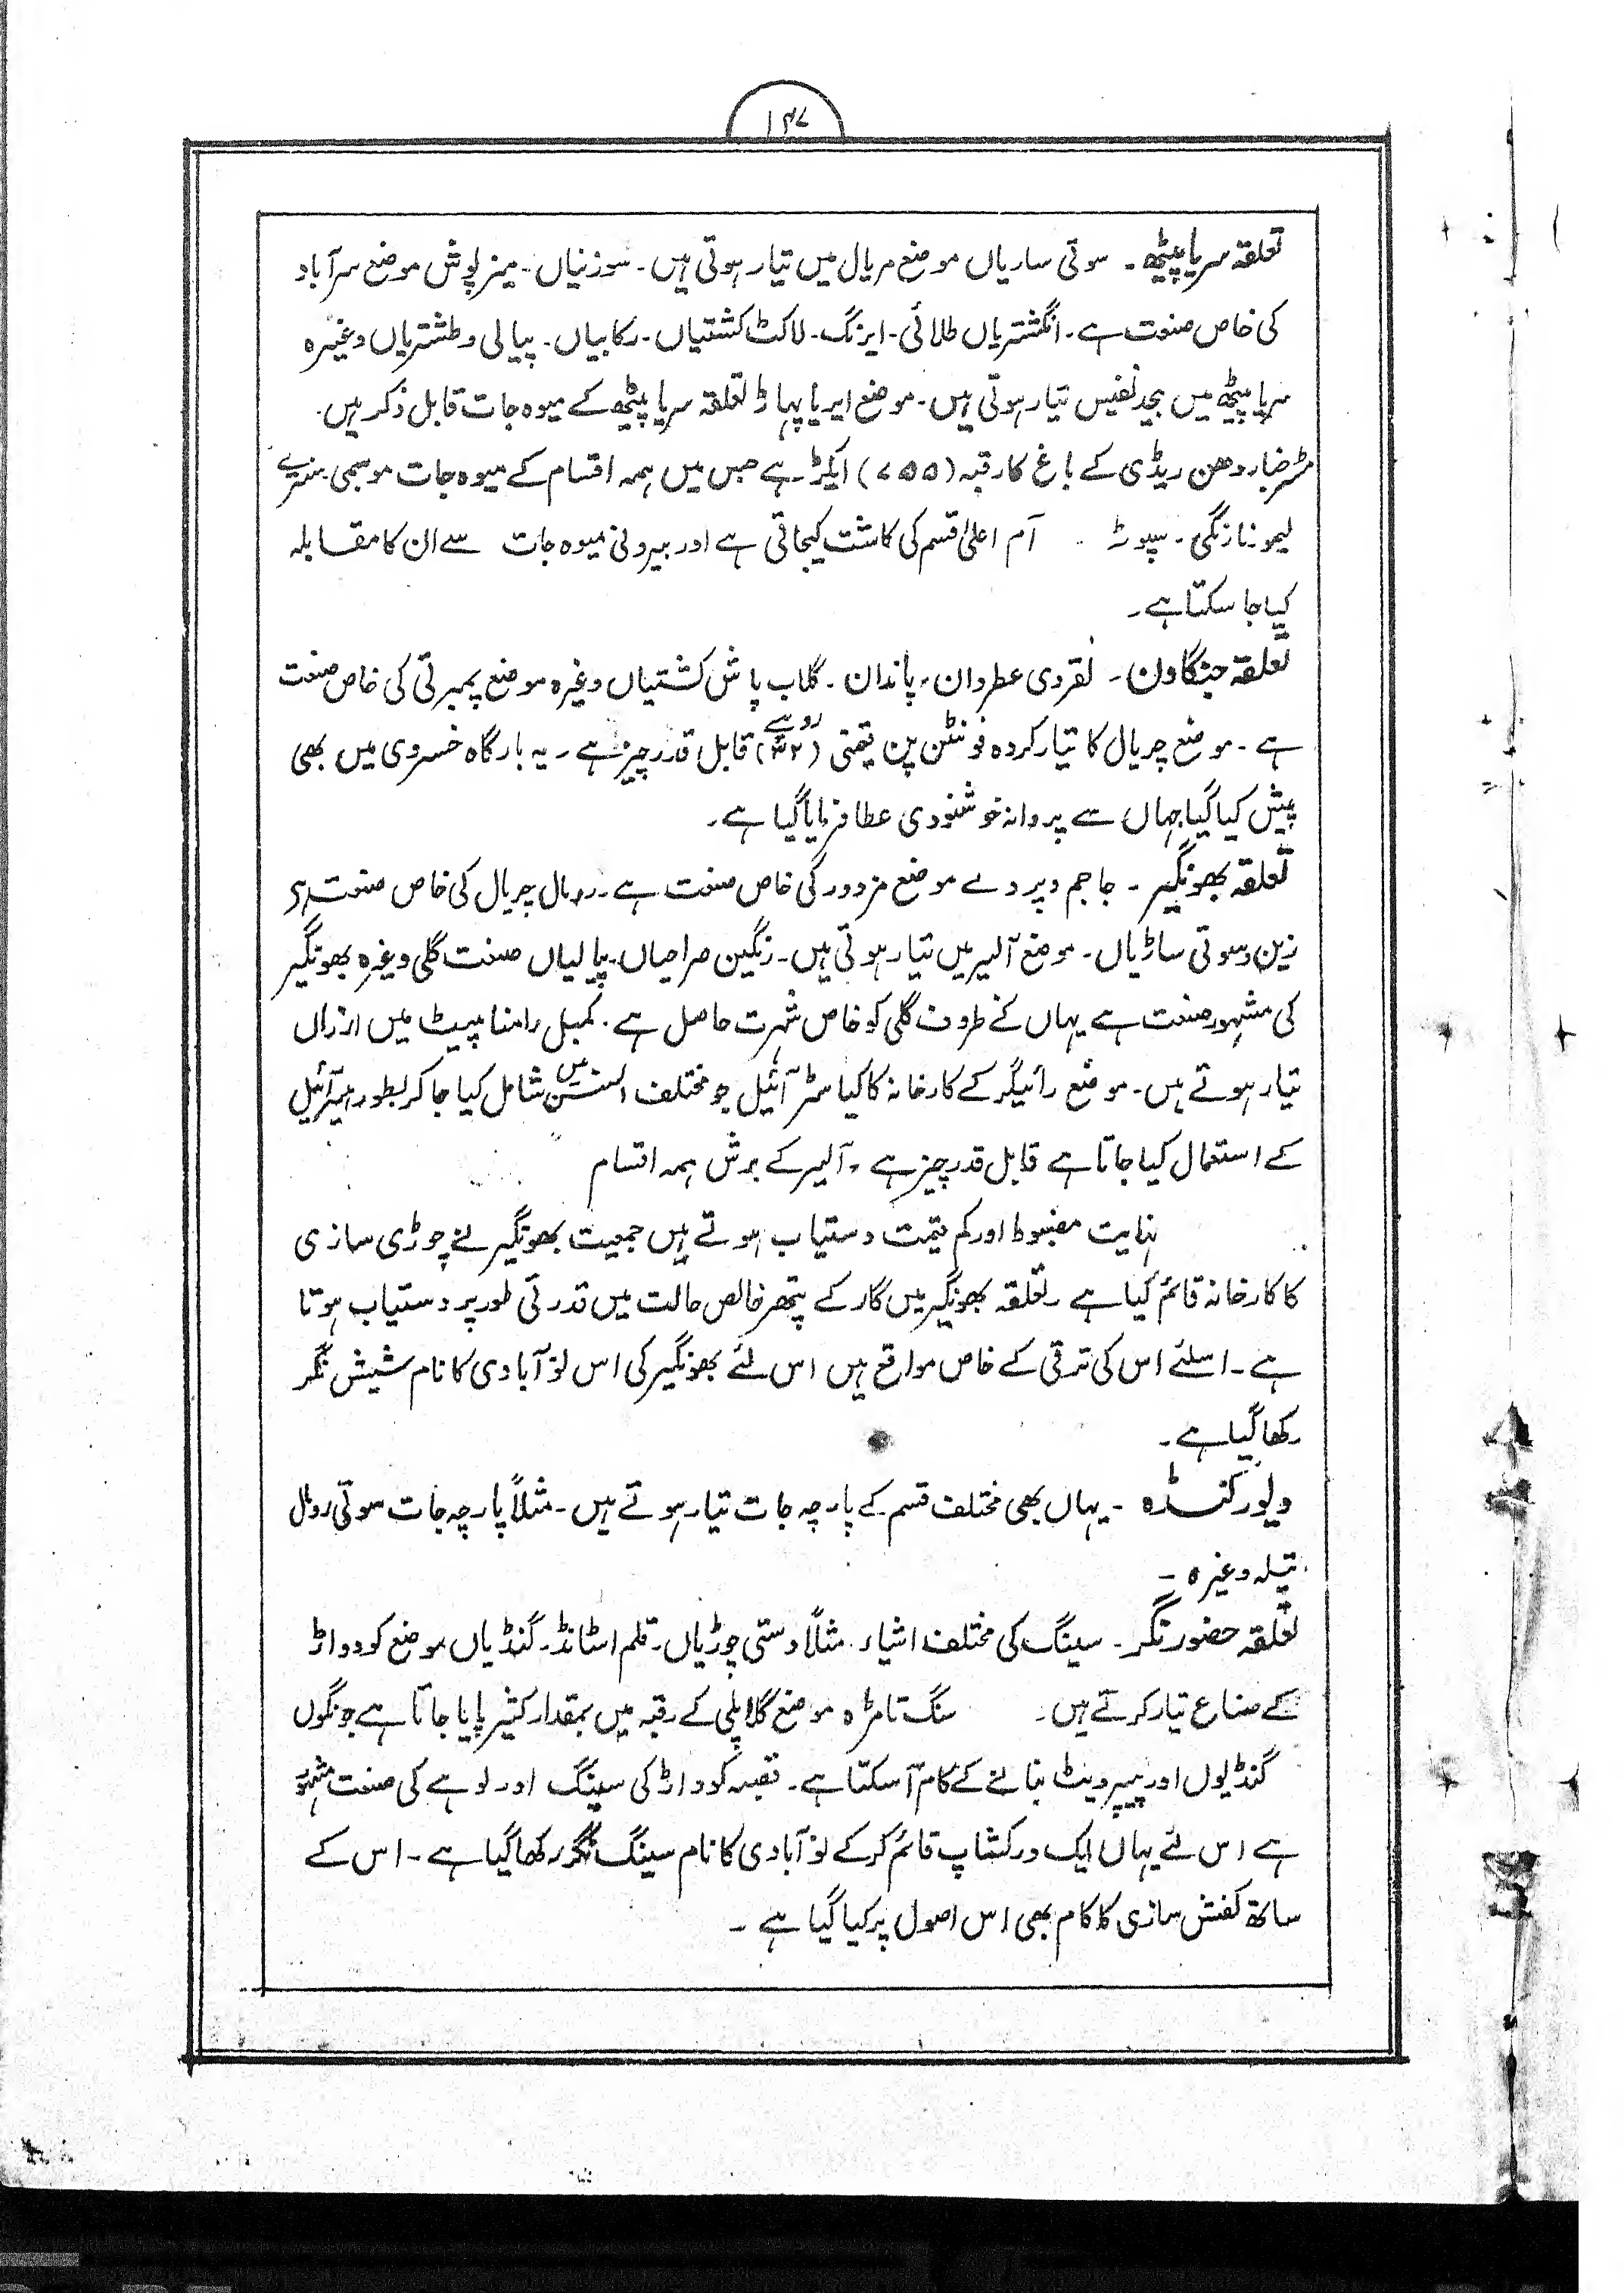 ۱۴۷
تعلقہ سریاپیٹھ ۔ سوتی ساریاں موضع مریال میں تیار ہوتی ہیں ۔ سوزنیاں ۔ میز پوش موضع سرآباد
کی خاص صنعت ہے ۔ انگشتریاں طلائی ۔ ایرنگ ۔ لاکٹ کشتیاں ۔ رکابیاں ۔ پیالی و طشتریاں وغیرہ
سریاپیٹھ میں بیحد نفیس تیار ہوتی ہیں ۔ موضع ایریا پہاڑ تعلقہ سریاپیٹھ کے میوہ جات قابل ذکر ہیں ۔
مسٹر جناردھن ریڈی کے باغ کا رقبہ (۷۵۵) ایکڑ ہے جس میں ہمہ اقسام کے میوہ جات موسمی سنترے
لیمو نارنگی ۔ سپوٹا ۔ آم اعلیٰ قسم کی کاشت کیجاتی ہے اور بیرونی میوہ جات سے ان کا مقابلہ
کیا جا سکتا ہے ۔
تعلقہ جنگاون ۔ نقروی عطردان ، پاندان ۔ گلاب پاش کشتیاں وغیرہ موضع پمبرتی کی خاص صنعت
ہے ۔ موضع چریال کا تیار کردہ فونٹن پن قیمتی (۳۲) روپے قابل قدر چیز ہے ۔ یہ بارگاہ خسروی میں بھی
پیش کیا گیا جہاں سے پروانہ خوشنودی عطا فرمایا گیا ہے ۔
تعلقہ بھونگیر ۔ جاجم و پردے موضع مزدور کی خاص صنعت ہے ۔ رومال چریال کی خاص صنعت ہے
زین و سوتی ساڑیاں ۔ موضع آلیر میں تیار ہوتی ہیں ۔ رنگین صراحیاں ۔ پیالیاں صنعت گلی وغیرہ بھونگیر
کی مشہور صنعت ہے یہاں کے ظروف گلی کو خاص شہرت حاصل ہے ۔ کمبل رامنا پیٹ میں ارزاں
تیار ہوتے ہیں ۔ موضع رائیگر کے کارخانہ کا کیاسٹر آئیل جو مختلف اسنس میں شامل کیا جا کر بطور ہیرآئیل
کے استعمال کیا جاتا ہے قابل قدر چیز ہے ۔ آلیر کے برش ہمہ اقسام
نہایت مضبوط اور کم قیمت دستیاب ہوتے ہیں جمعیت بھونگیر نے چوڑی سازی
کا کارخانہ قائم کیا ہے ۔ تعلقہ بھونگیر میں گار کے پتھر خالص حالت میں قدرتی طور پر دستیاب ہوتا
ہے ۔ اسلئے اس کی ترقی کے خاص مواقع ہیں اس لئے بھونگیر کی اس نو آبادی کا نام شیش نگر
رکھا گیا ہے ۔
دیور کنڈہ ۔ یہاں بھی مختلف قسم کے پارچہ جات تیار ہوتے ہیں ۔ مثلاً پارچہ جات سوتی رومال
تیلہ وغیرہ ۔
تعلقہ حضور نگر ۔ سینگ کی مختلف اشیاء ۔ مثلاً دستی چوڑیاں ۔ قلم اسٹانڈ ۔ گنڈیاں موضع کودواڑ
کے صناع تیار کرتے ہیں ۔ سنگ تامڑہ موضع گلاپلی کے رقبہ میں بمقدار کثیر پایا جاتا ہے جو نگوں
گنڈیوں اور پیپرویٹ بنانے کے کام آ سکتا ہے ۔ قصبہ کودواڑ کی سینگ اور لوہے کی صنعت مشہور
ہے اس لئے یہاں ایک ورکشاپ قائم کر کے نو آبادی کا نام سینگ نگر رکھا گیا ہے ۔ اس کے
ساتھ کفش سازی کا کام بھی اس اصول پر کیا گیا ہے ۔